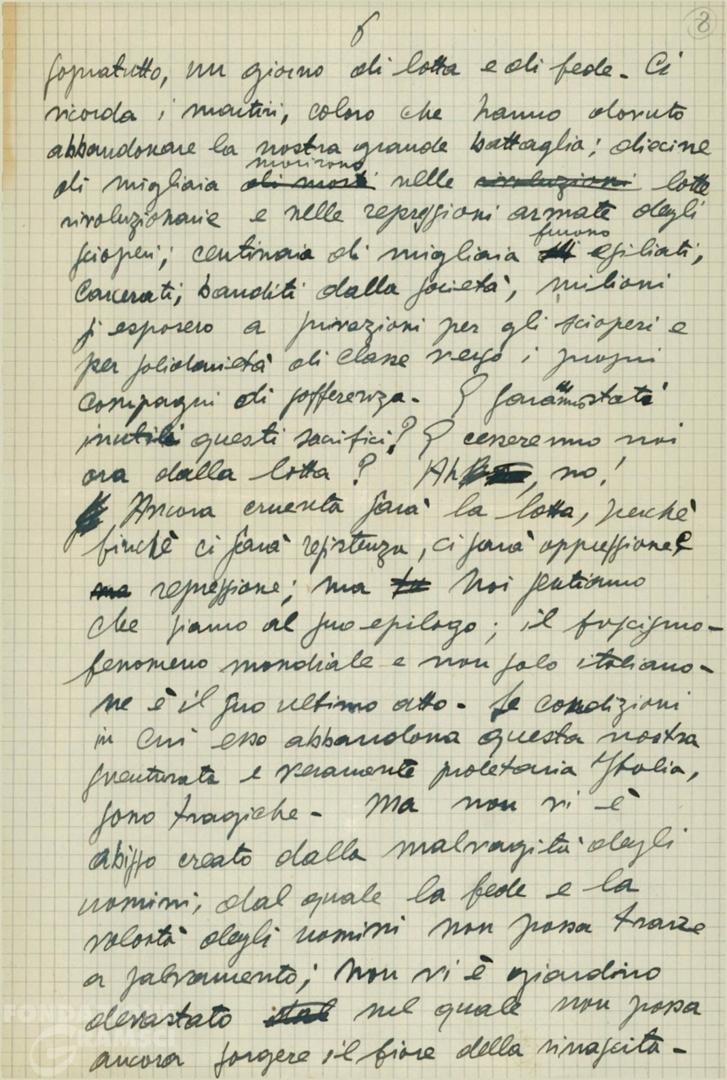 6 8
sopratutto, un giorno di lotta e di fede. Ci
ricorda i martiri, coloro che hanno dovuto
abbandonare la nostra grande battaglia; diecine
morirono
di migliaia di morti nelle rivoluzioni lotte
rivoluzionarie e nelle repressioni armate degli
furono
scioperi; centinaia di migliaia di esiliati,
carcerati, banditi dalla società, milioni
si esposero a privazioni per gli scioperi e
per solidarietà di classe verso i propri
compagni di sofferenza. E saranno stati
inutili questi sacrifici? E cesseremo noi
ora dalla lotta? Ah, no!
Ancora cruenta sarà la lotta, perchè
finchè ci sarà resistenza, ci sarà oppressione e
ma repressione; ma noi sentiamo
che siamo al suo epilogo; il fascismo -
fenomeno mondiale e non solo italiano -
ne è il suo ultimo atto. Le condizioni
in cui esso abbandona questa nostra
sventurata e veramente proletaria Italia,
sono tragiche. Ma non vi è
abisso creato dalla malvagità degli
uomini, dal quale la fede e la
volontà degli uomini non possa trarre
a salvamento; non vi è giardino
devastato nel quale non possa
ancora sorgere il fiore della rinascita.
FONDAZIONE
GRAMSCI